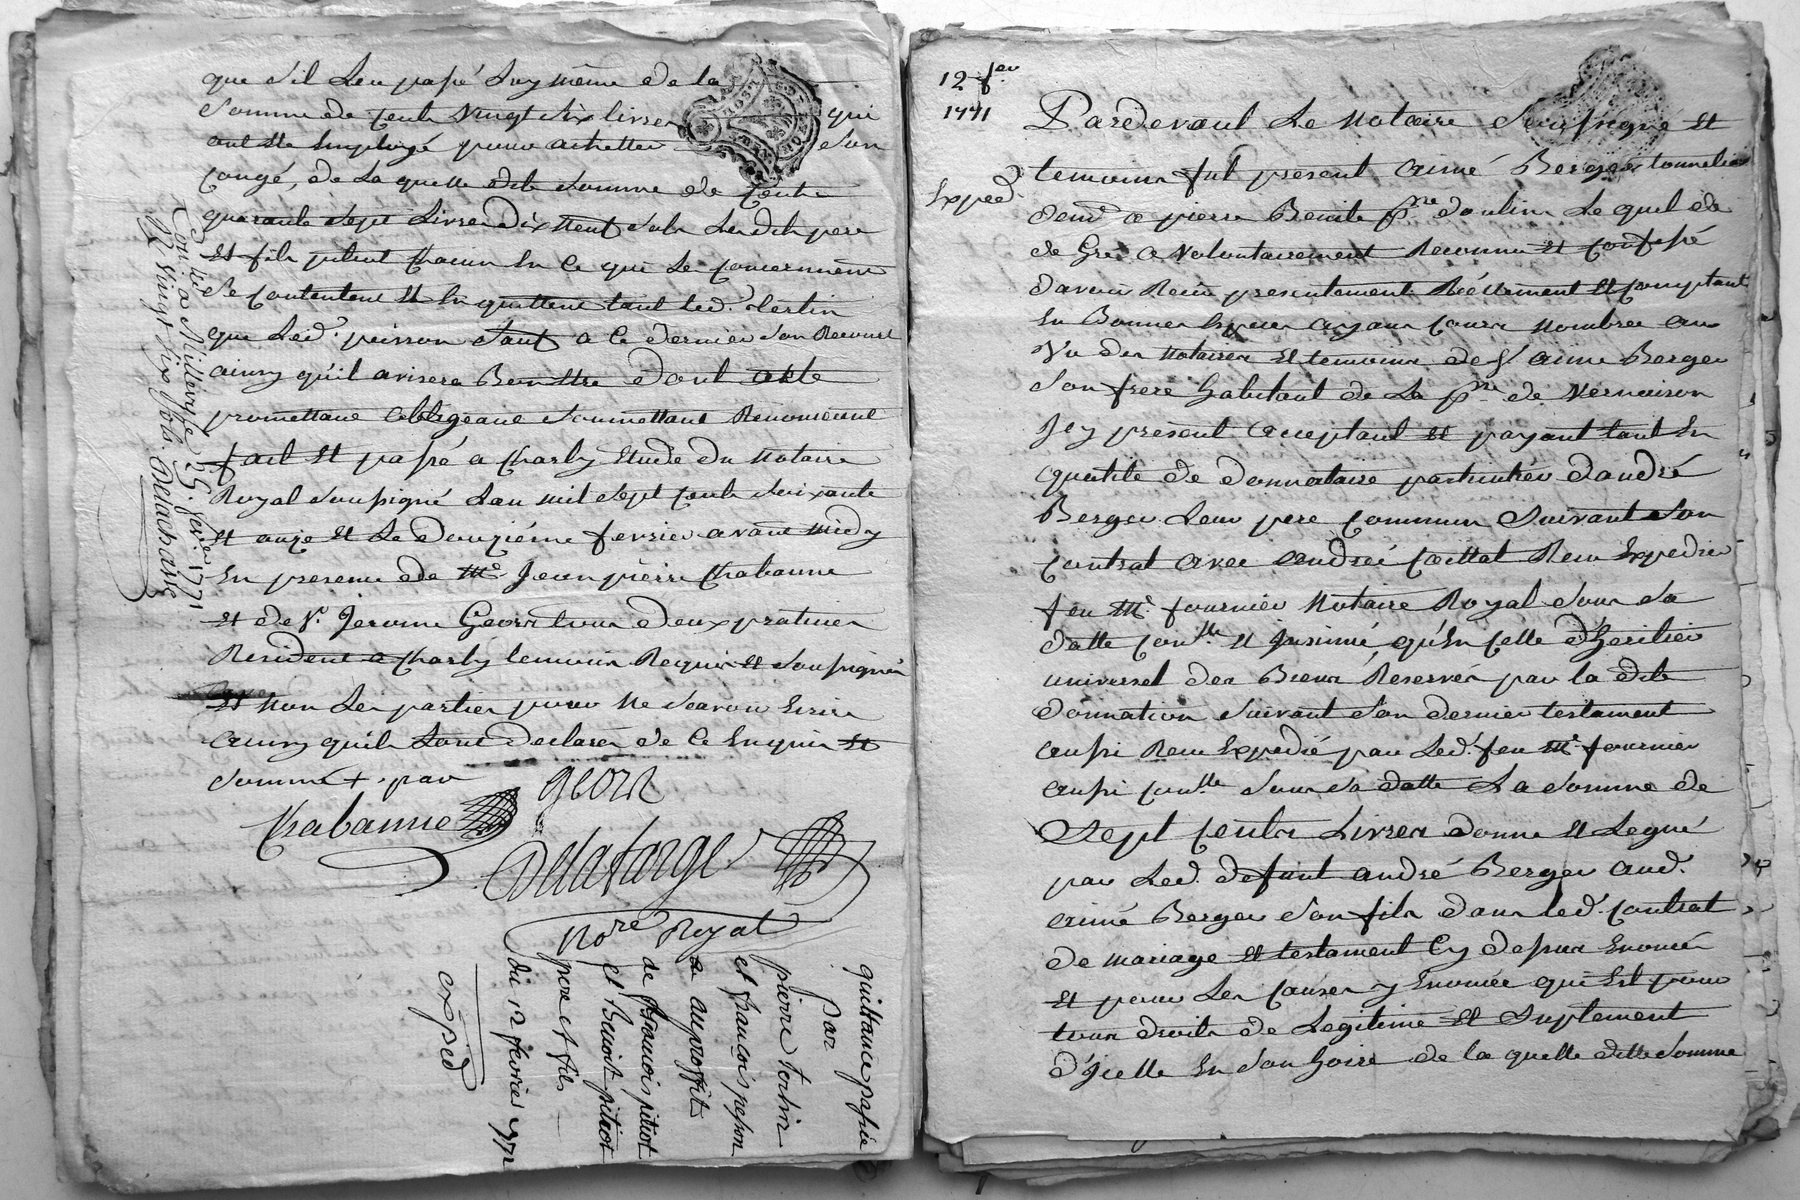 que s'il Leu passé Luy même de la
Somme de cents vingt six livres qui
ont été Employé pour achetter son
congé, de La quelle dite somme de cents
quarante sept Livres dix neuf sols Lesdits pere
Et fils pitiot chacun En ce qui Le concernent
Se contentent Et En quittent tant led.
que Led. peisson sauf a ce dernier son Recourt
ainsy qu'il avisera Bon Etre dont acte
promettant obligeant soumettant Renonceant
fait Et passé a Charly Etude du Notaire
Royal soussigné Lan mil sept cents soixante
Et onze Et Le douziéme fevrier avant midy
En presence de Me Jean pierre Chabanne
Et de Sr. Jerome Georr tous deux praticien
Resident a Charly temoins Requis Et soussignés
Et Non Les parties pour Ne scavoir Ecrire
ainsy quils Lont declarés de ce Enquis Et
sommé + par
georr
Chabanne
Delafarge
Nore Royal
Conlé a Millery le 25. fevrier 1771
R vingt six sols. Delacharse
quittance passée
par
pierre
et francois peisson
au proffit
de francois pitiot
et Benoist pitiot
pere et fils
du 12 fevrier 1771
exped
12 fer
1771
Exped
Pardevant Le Notaire Soussigné Et
temoins fut present aimé Berger tonnelier
demt a pierre Benite psse doulins Le quel de
de Gré a volontairement Reconnu Et confessé
davoir Recu presentement Réellement Et comptant
En Bonnes Especes ayant cours Nombrée au
Vu des Notaires Et temoins de Sr aimé Berger
son frere habitant de La psse de vernaison
Jcy présent acceptant Et payant tant En
qualité de donnataire particulier dandré
Berger Leur pere commun Suivant son
contrat avec andreé coittat Recu Expedié
feu Me. fournier Notaire Royal sous sa
datte conlle Et Jnsinué, qu'En celle d'héritier
universel des Biens Réservés par la dite
donnation suivant son dernier testament
aussi Recu Expedié par Led. feu Me. fournier
aussi conlle sous sa datte La somme de
Sept cents Livres donné Et Legué
par Led. defunt andré Berger aud.
aimé Berger son fils dans led. contrat
de mariage Et testament Cy dessus Enoncés
Et pour Les causes y Enoncée qui Est pour
tous droits de Legitime Et Suplement
d'Jcelle En son hoirie de la quelle ditte somme